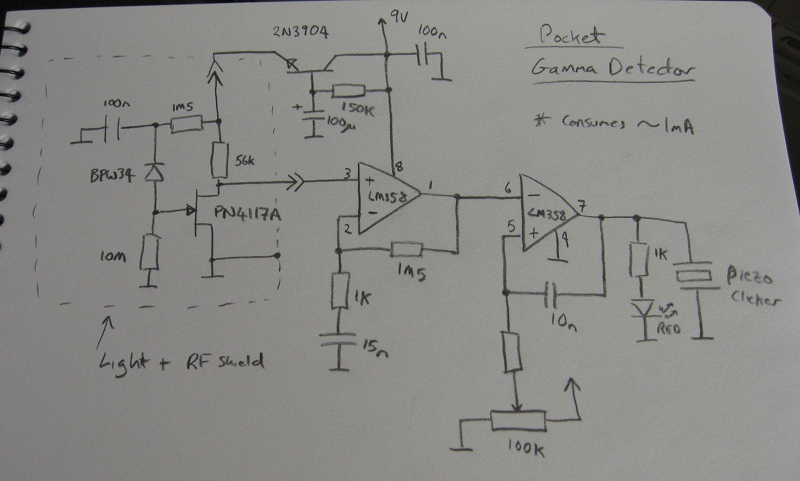 Pocket
Gamma Detector
* Consumes ~1mA
2N3904
9V
100n
150K
+
100µ
100n
1m5
56k
BPW34
PN4117A
10m
Light + RF shield
3
+
8
LM358
1
-
2
1m5
1K
15n
6
-
LM358
7
5
+
4
10n
100K
1K
RED
Piezo
Clicker